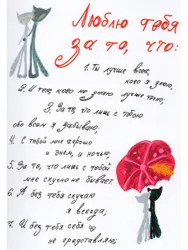 Люблю тебя
за то, что:
1. Ты лучше всех,
кого я знаю,
2. И тех, кого не знаю лучше тоже,
3. За то, что лишь с тобою
обо всем я забываю.
4. С тобой мне хорошо
и днём, и ночью,
5. За то, что лишь с тобой
мне скучно не бывает.
6. А без тебя скучаю
я всегда;
7. И без тебя себя
не представляю;